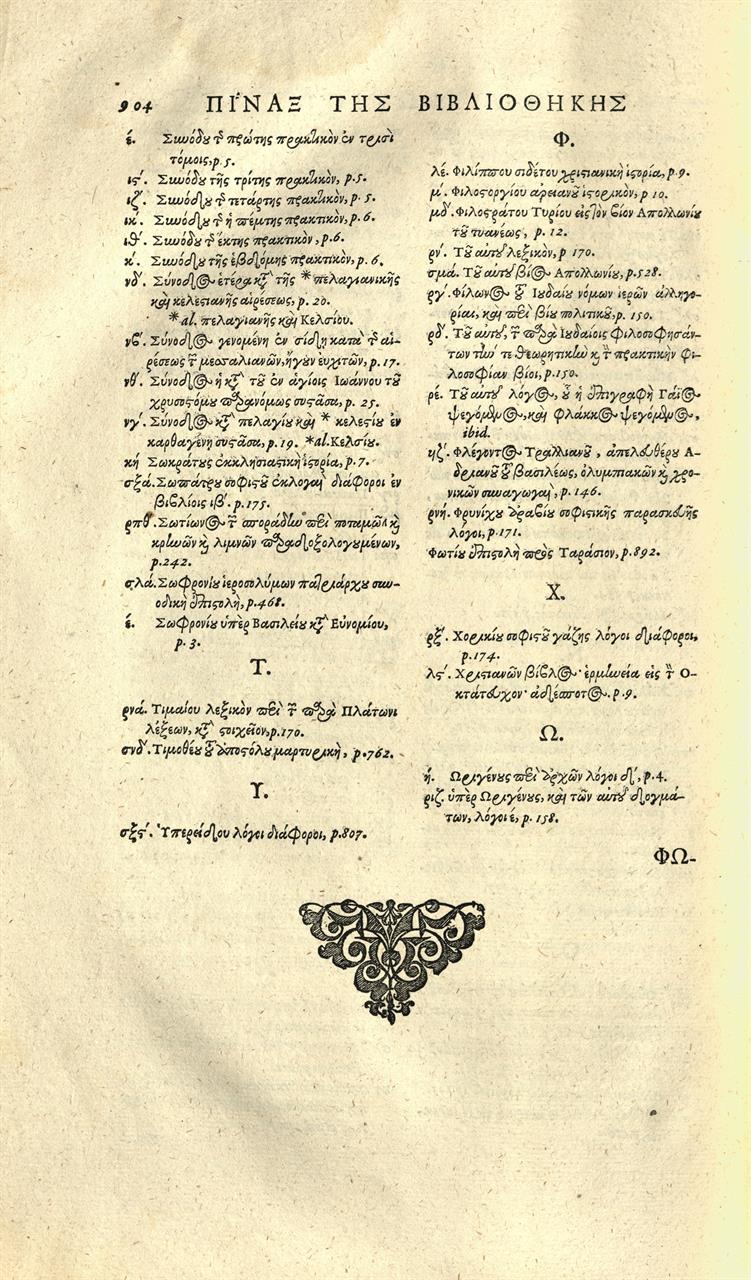 904 ΠΙΝΑΞ ΤΗΣ ΒΙΒΛΙΟΘΗΚΗΣ
έ. Συνόδου τῆς πρώτης πρακτικὸν ἐν τρισὶ
τόμοις, p. 5.
ις΄. Συνόδου τῆς τρίτης πρακτικὸν, p. 5.
ιζ΄. Συνόδου τῆς τετάρτης πρακτικὸν, p. 5.
ιη΄. Συνόδου τῆς πέμπτης πρακτικὸν, p. 6.
ιθ΄. Συνόδου τῆς ἕκτης πρακτικὸν, p. 6.
κ΄. Συνόδου τῆς ἑβδόμης πρακτικὸν, p. 6.
νδ΄. Σύνοδος ἑτέρα κατὰ τῆς * πελαγιανικῆς
καὶ κελεστιανῆς αἱρέσεως, p. 20.
* al. πελαγιανῆς καὶ Κελσίου.
νβ΄. Σύνοδος γενομένη ἐν σίδῃ κατὰ τῆς αἱ-
ρέσεως τῶν μεσσαλιανῶν, ἤγουν εὐχιτῶν, p. 17.
νθ΄. Σύνοδος ἡ κατὰ τοῦ ἐν ἁγίοις Ἰωάννου τοῦ
χρυσοστόμου παρανόμως συστᾶσα, p. 25.
νγ΄. Σύνοδος κατὰ πελαγίου καὶ * κελεστίου ἐν
καρθαγένῃ συστᾶσα, p. 19. * al. Κελσίου.
κή Σωκράτους ἐκκλησιαστικὴ ἱστορία, p. 7.
σξά. Σωπάτρου σοφιστοῦ ἐκλογαὶ διάφοροι ἐν
βιβλίοις ιβ΄. p. 175.
ρπθ΄. Σωτίωνος τῶν σποράδην περὶ ποταμῶν καὶ
κρηνῶν καὶ λιμνῶν παραδοξολογουμένων,
p. 242.
σλά. Σωφρονίου ἱεροσολύμων πατριάρχου συν-
οδικὴ ἐπιστολὴ, p. 468.
έ. Σωφρονίου ὑπὲρ Βασιλείου κατὰ Εὐνομίου,
p. 3.
Τ.
ρνά. Τιμαίου λεξικὸν περὶ τῶν παρὰ Πλάτωνι
λέξεων, κατὰ στοιχεῖον, p. 170.
σνδ΄. Τιμοθέου τοῦ ἀποστόλου μαρτυρικὴ, p. 762.
Υ.
σξς΄. Ὑπερείδου λόγοι διάφοροι, p. 807.
Φ.
λέ. Φιλίππου σιδέτου χριστιανικὴ ἱστορία, p. 9.
μ΄. Φιλοστοργίου ἀρειανοῦ ἱστορικὸν, p 10.
μδ΄. Φιλοστράτου Τυρίου εἰς τὸν βίον Ἀπολλωνίου
τοῦ τυανέως, p. 12.
ρν΄. Τοῦ αὐτοῦ λεξικὸν, p 170.
σμά. Τοῦ αὐτοῦ βίος Ἀπολλωνίου, p. 528.
ργ΄. Φίλωνος τοῦ Ἰουδαίου νόμων ἱερῶν ἀλληγο-
ρίαι, καὶ περὶ βίου πολιτικοῦ, p. 150.
ρδ΄. Τοῦ αὐτοῦ, τῶν παρὰ Ἰουδαίοις Φιλοσοφησάν-
των τήν τε θεωρητικὴν καὶ τὴν πρακτικὴν φι-
λοσοφίαν βίοι, p. 150.
ρέ. Τοῦ αὐτοῦ λόγος, οὗ ἡ ἐπιγραφὴ Γάϊος
ψεγόμενος, καὶ φλάκκος ψεγόμενος,
ibid.
ϟζ΄. Φλέγοντος Τραλλιανοῦ, ἀπελευθέρου Ἀ-
δριανοῦ τοῦ βασιλέως, ὀλυμπιακῶν καὶ χρο-
νικῶν συναγωγαὶ, p. 146.
ρνή. Φρυνίχου ἀραβίου σοφιστικῆς παρασκευῆς
λόγοι, p. 171.
Φωτίου ἐπιστολὴ πρὸς Ταράσιον, p. 892.
Χ.
ρξ΄. Χορικίου σοφιστοῦ γάζης λόγοι διάφοροι,
p. 174.
λς΄. Χριστιανῶν βίβλος· ἑρμηνεία εἰς τὴν Ὀ-
κτάτευχον· ἀδέσποτος. p. 9.
Ω.
ή. Ὠριγένους περὶ ἀρχῶν λόγοι δ΄, p. 4.
ριζ. ὑπὲρ Ὠριγένους, καὶ τῶν αὐτοῦ δογμά-
των, λόγοι έ, p. 158.
ΦΩ-